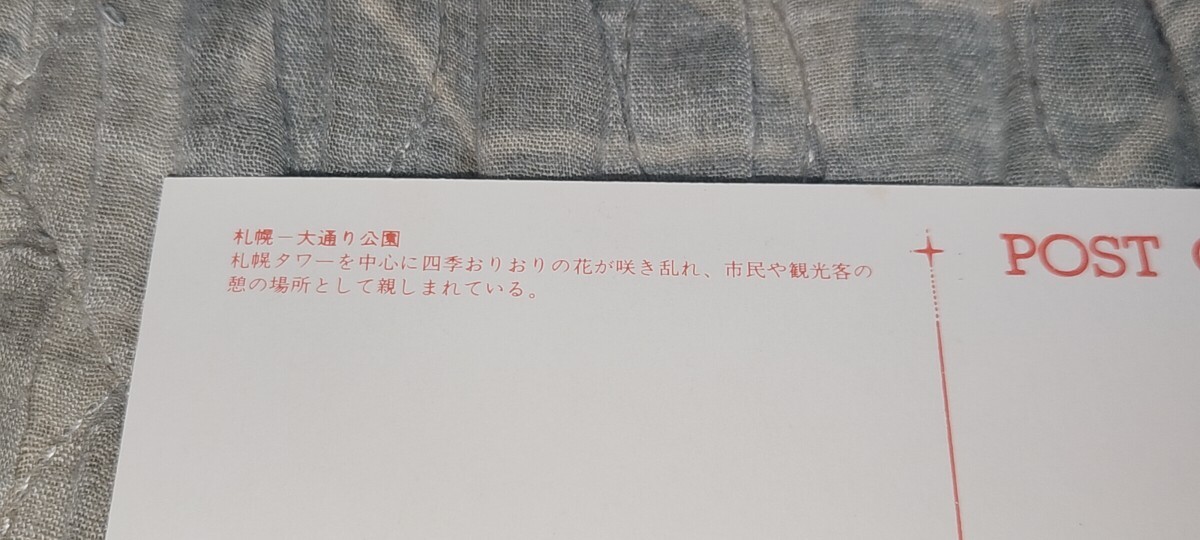 札幌ー大通り公園
札幌タワーを中心に四季おりおりの花が咲き乱れ、市民や観光客の
憩の場所として親しまれている。
POST